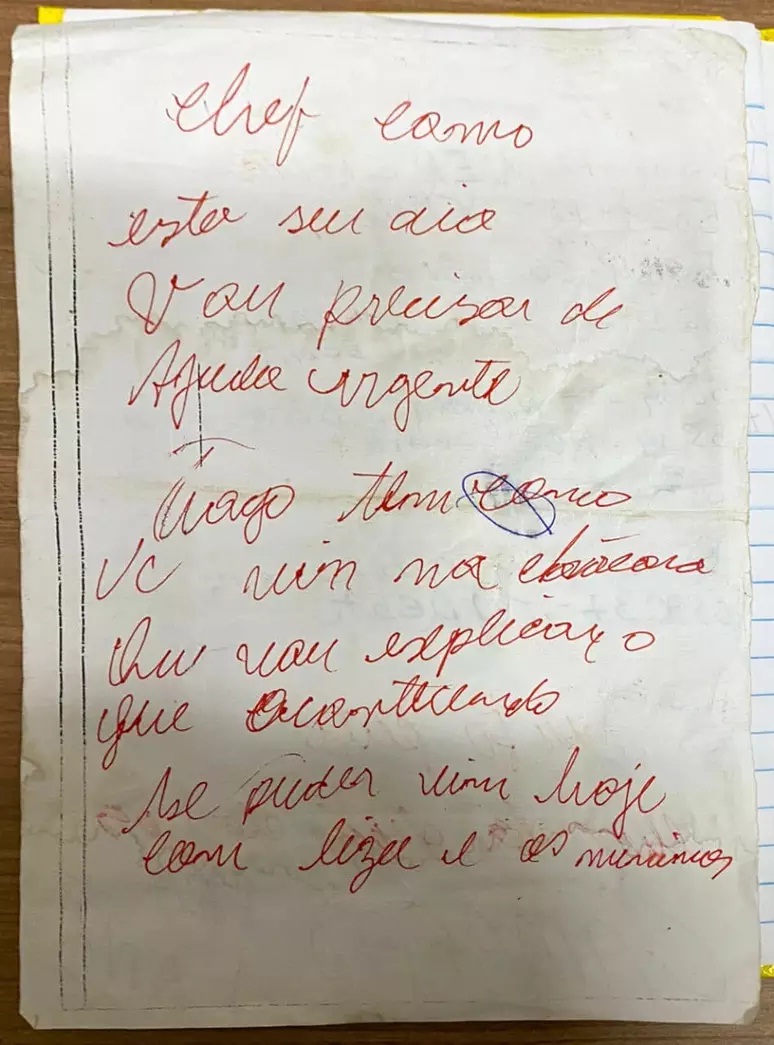 Chef como
esta seu dia
Vou precisar de
Ajuda urgente
Tiago tem como
Vc vim na chácara
Que vou explicar o
que acontecendo
se puder vim hoje
com liza e os meninos